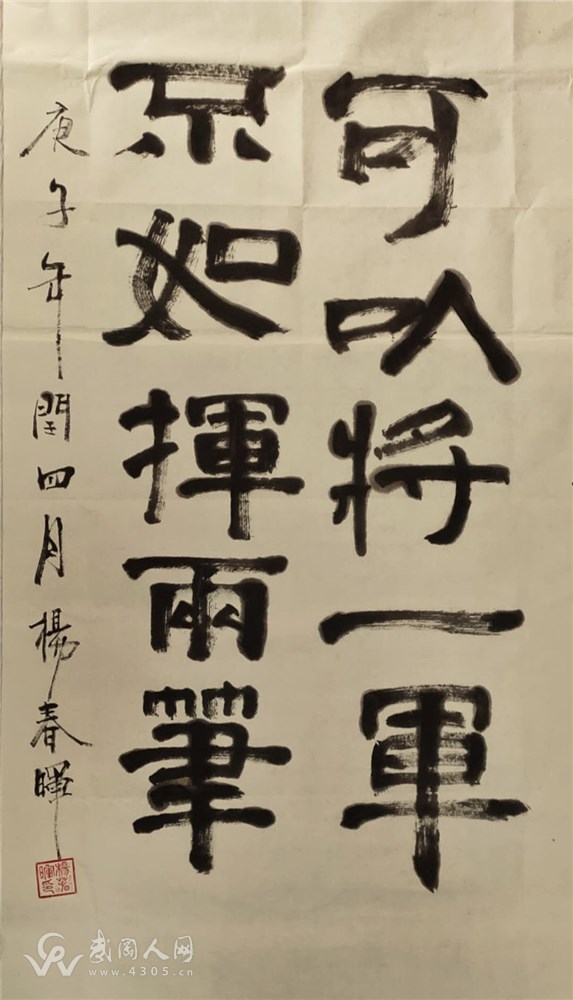 可以將一軍
不如揮兩筆
庚子年閏四月楊春暉
武岡人网
www.4305.cn